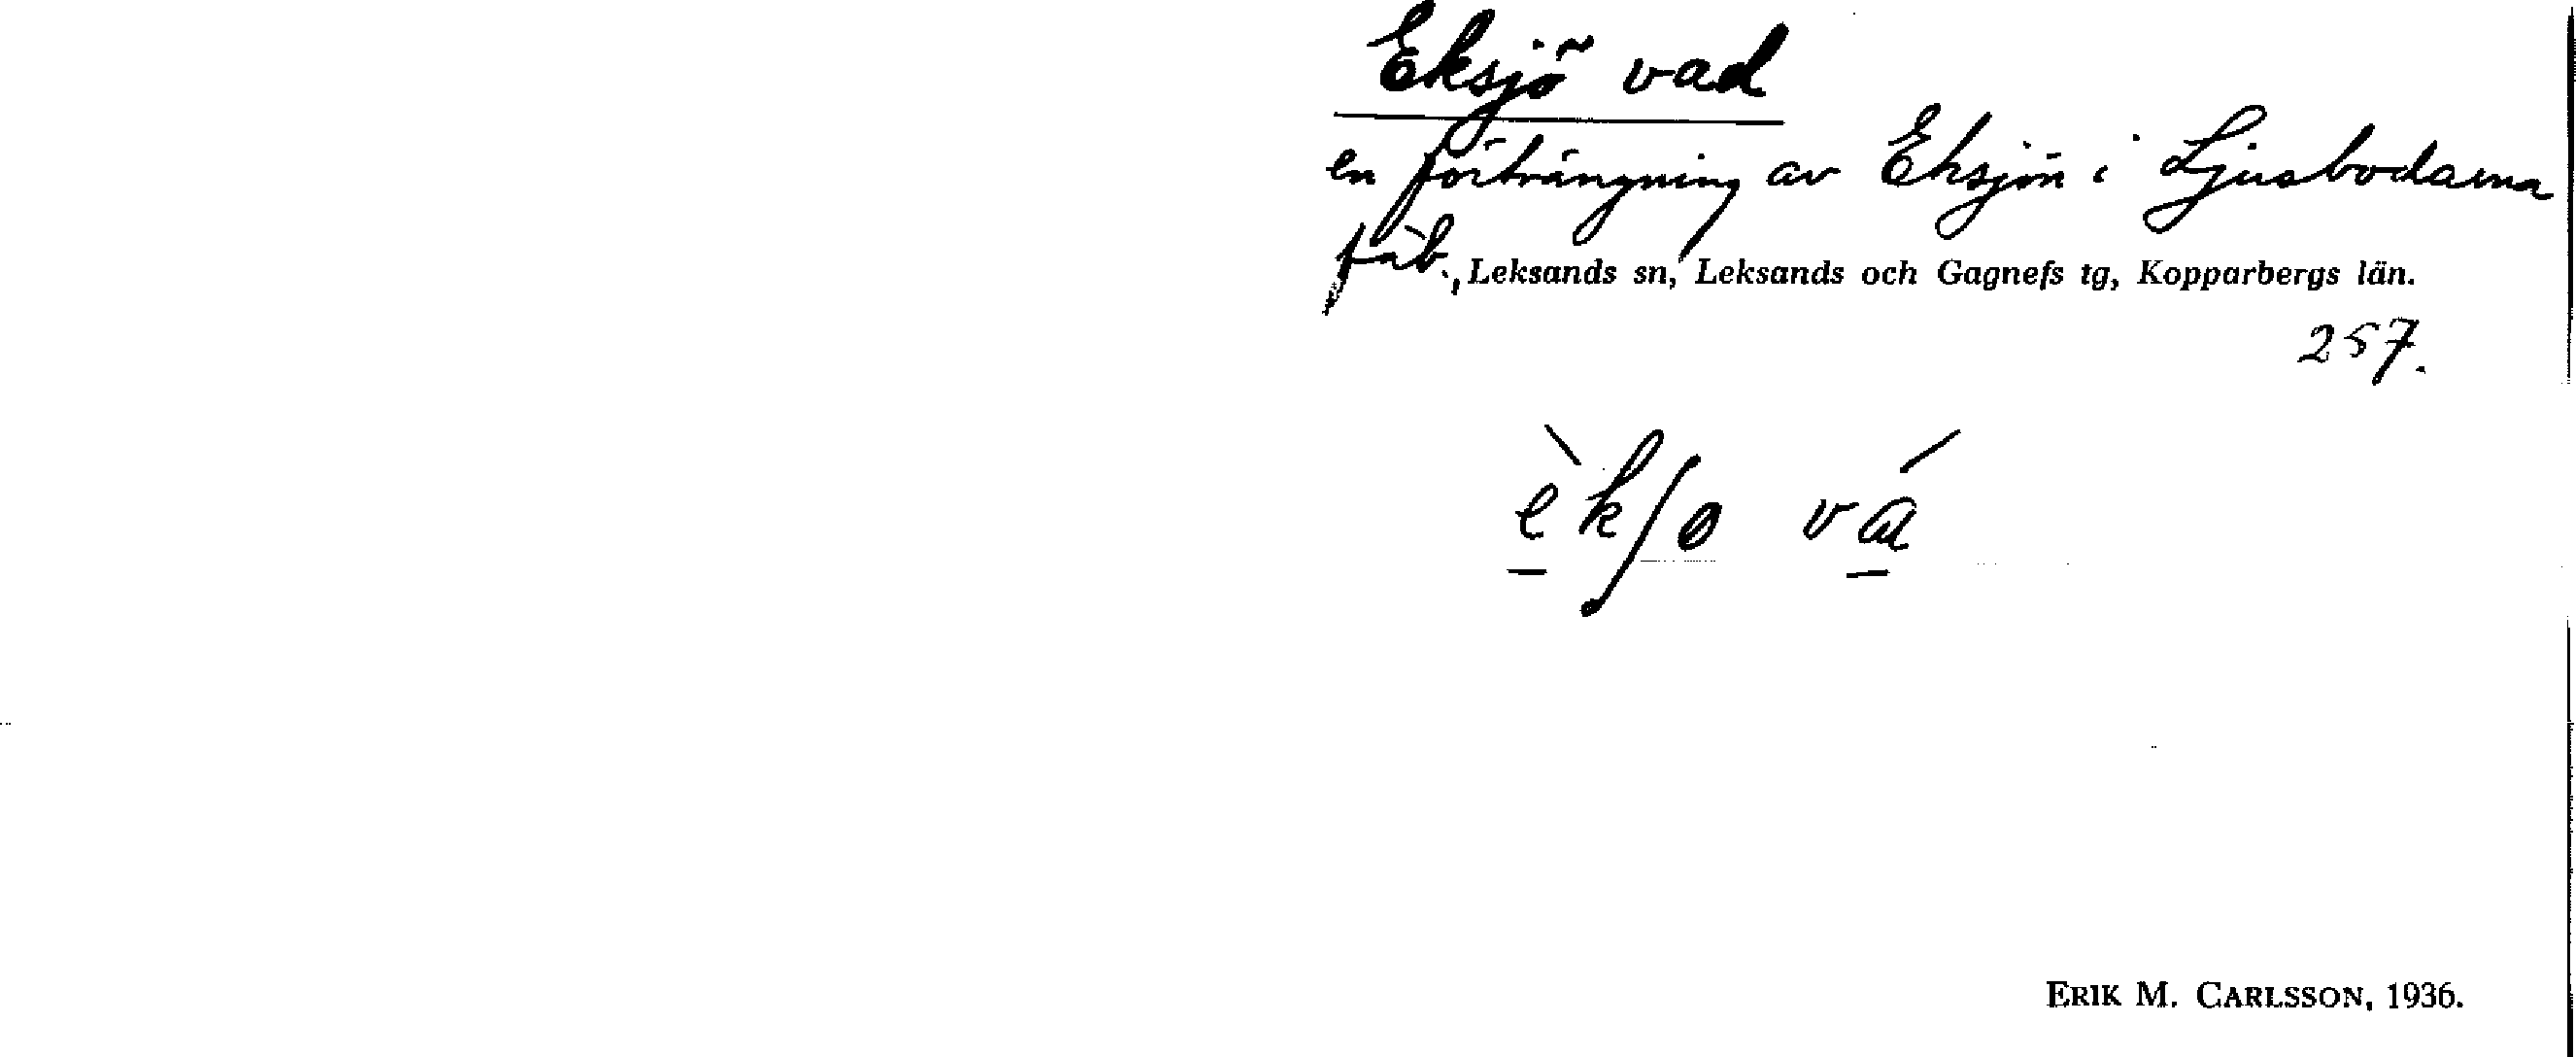 Eksjö vad
en förträngning av Eksjön i Ljusbodarna
fäb., Leksands sn, Leksands och Gagnefs tg, Kopparbergs län.
257.
vá
ERIK M. CARLSSON, 1936.